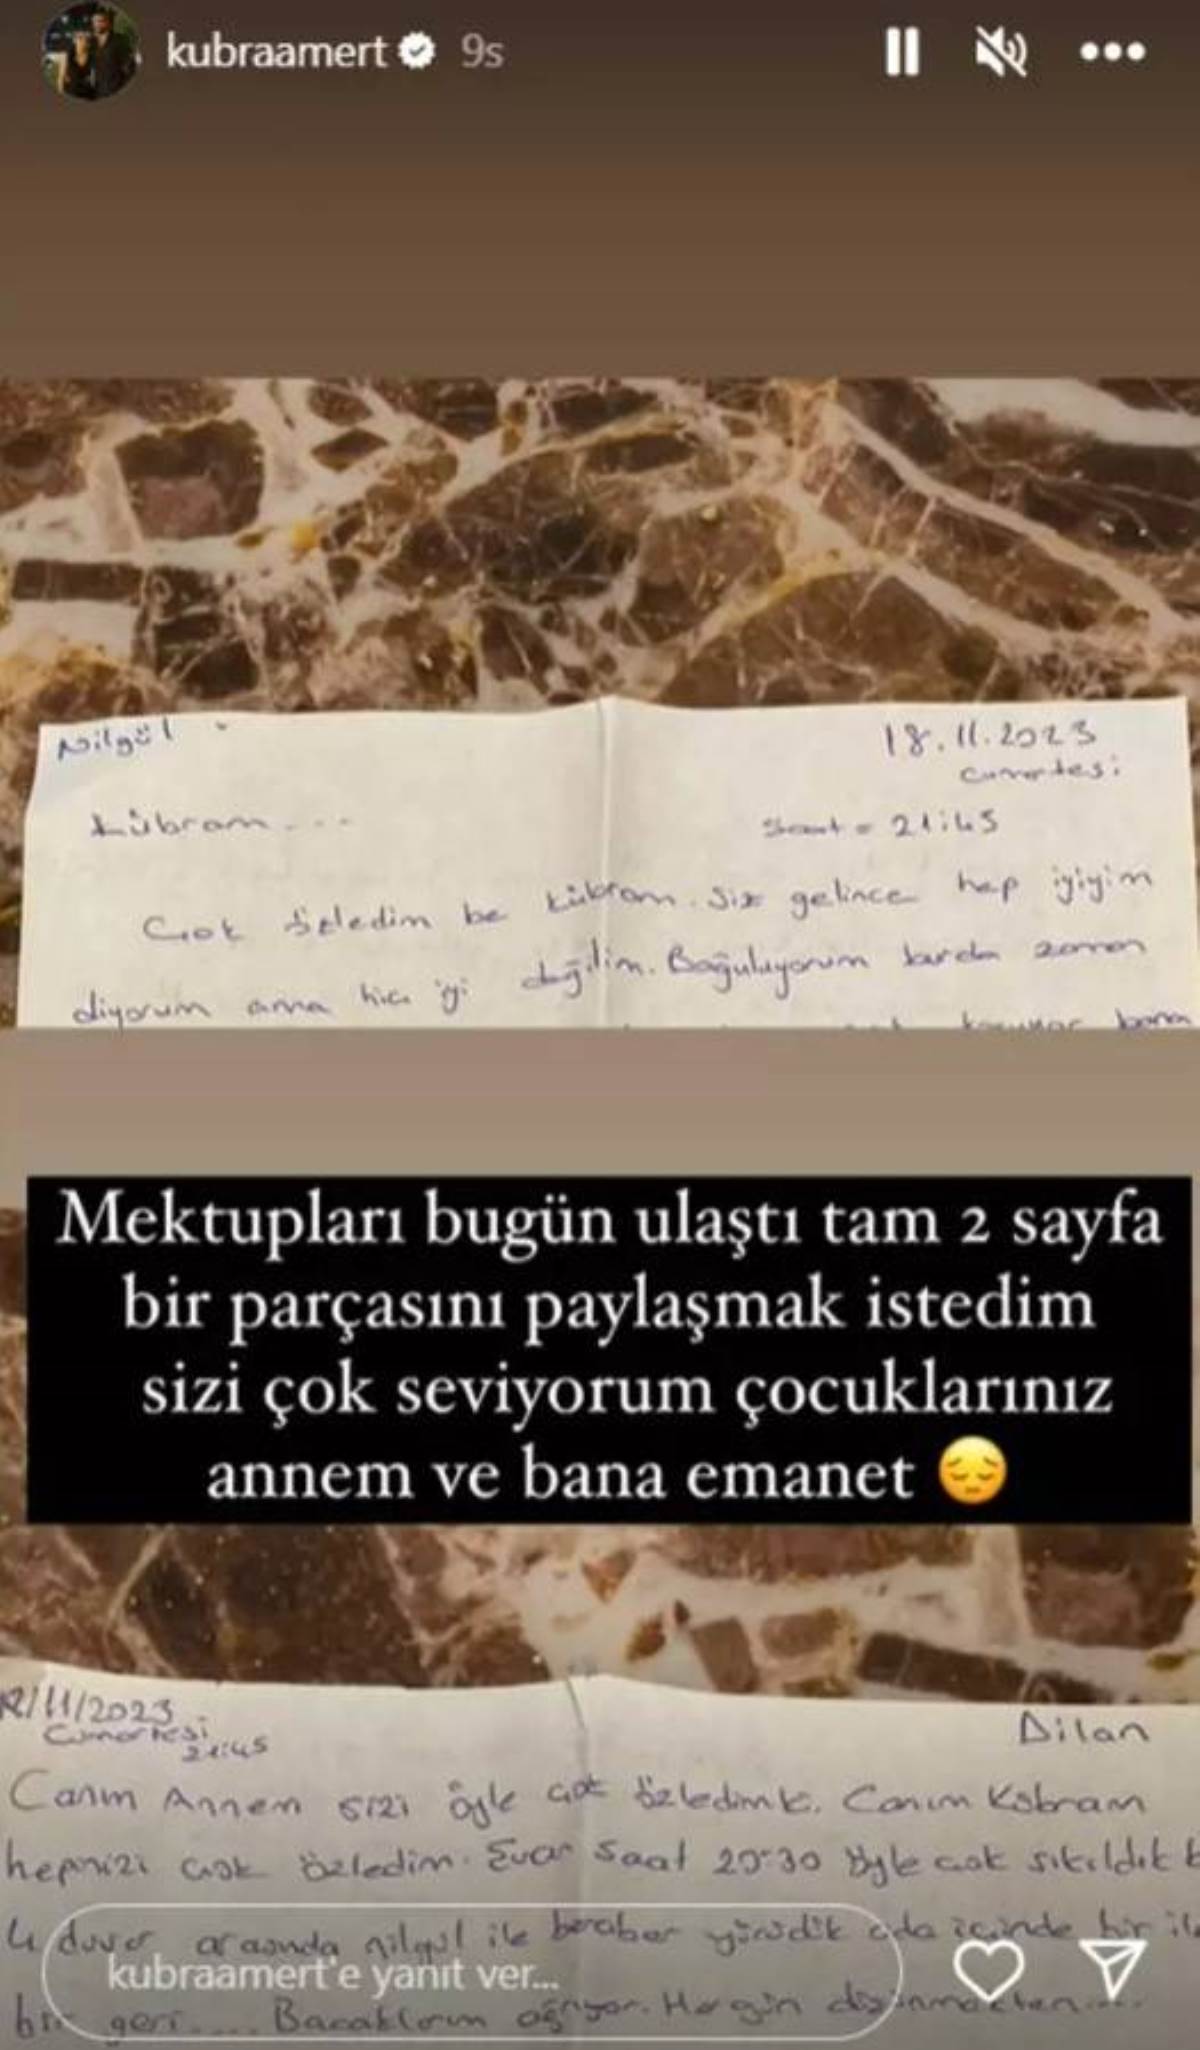 kubraamert 9s
Nilgül
18.11.2023
Cumartesi
Kübram...
Saat = 21:45
Çok özledim be kübram. Siz gelince hep iyiyim
diyorum ama hiç iyi değilim. Boğuluyorum burda zaman
bana
Mektupları bugün ulaştı tam 2 sayfa
bir parçasını paylaşmak istedim
sizi çok seviyorum çocuklarınız
annem ve bana emanet 😔
/11/2023
Cumartesi
21:45
Dilan
Canım Annem sizi öyle çok özledimki. Canım Kübram
hepinizi çok özledim. Saat 20:30 öyle çok sıkıldık
4 duvar arasında nilgül ile beraber yürüdük oda içinde bir
kubraamert'e yanıt ver...
bir geri.... Bacaklarım ağrıyor. Hergün düşünmekten....